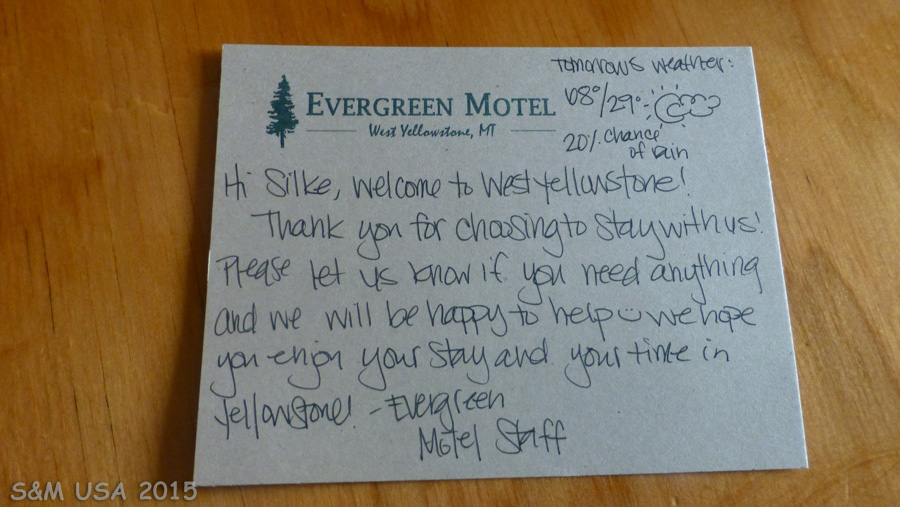 Tomorrows weather:
68°/29°
20% chance
of rain
EVERGREEN MOTEL
West Yellowstone, MT
Hi Silke, welcome to West Yellowstone!
Thank you for choosing to stay with us!
Please let us know if you need anything
and we will be happy to help we hope
you enjoy your stay and your time in
Yellowstone! - Evergreen
Motel Staff
S&M USA 2015